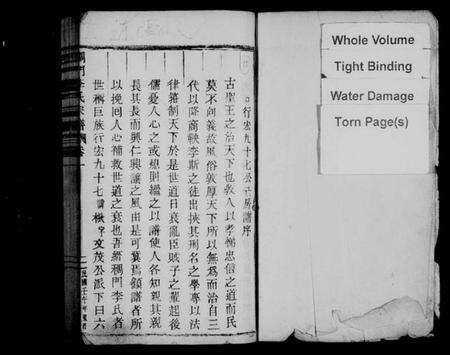 行宏九十七公房譜序
古聖王之治天下也教人以孝悌忠信之道而民
莫不向義故風俗敦厚天下所以無為而治自三
代以降商鞅李斯之徒出挾其刑名之學專以法
律箝制天下於是世道日衰亂臣賊子之輩起後
儒憂人心之或熄則繼之以譜使人各知親其親
長其長而興仁興讓之風由是可冀焉顧譜者所
以挽回人心補救世道之衰也吾緒稠門李氏者
世稱巨族行宏九十七諱楸字文茂公派下曰六
Whole Volume
Tight Binding
Water Damage
Torn Page(s)